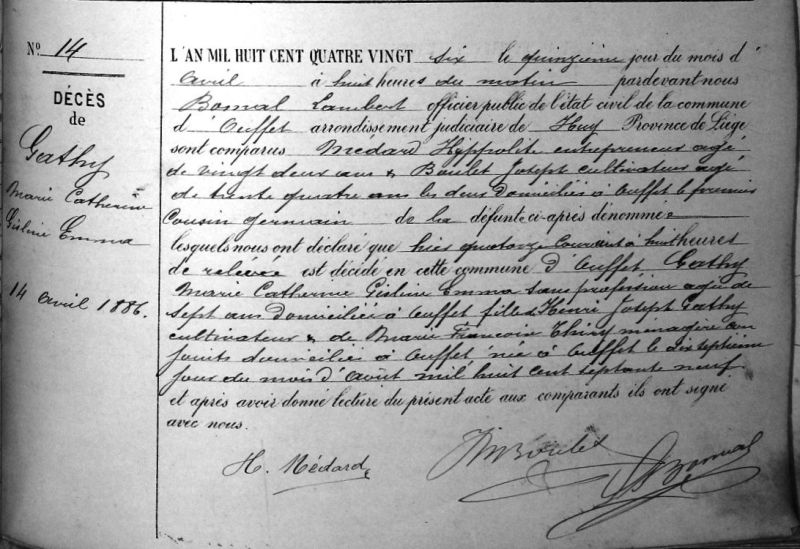 N° 14
DÉCÈS
de
Gathy
Marie Catherine
Gisline Emma
14 Avril 1886.
L'AN MIL HUIT CENT QUATRE VINGT six le quinzième jour du mois d'
Avril à huit heures du matin pardevant nous
Bomal Lambert officier public de l'état civil de la commune
d'Ouffet arrondissement judiciaire de Huy Province de Liége
sont comparus Médard Hyppolite entrepreneur agé
de vingt deux ans & Boulet Joseph cultivateur agé
de trente quatre ans les deux domiciliés à Ouffet le premier
Cousin germain de la défunte ci-après dénommée
lesquels nous ont déclaré que hier quatorze courant à huit heures
de relevée est décédé en cette commune d'Ouffet Gathy
Marie Catherine Gisline Emma sans profession agée de
Sept ans domiciliée à Ouffet fille de Henri Joseph Gathy
cultivateur & de Marie François Thiry menagère con
joints domiciliés à Ouffet née à Ouffet le dix septième
jour du mois d'Août mil huit cent septante neuf
et après avoir donné lecture du présent acte aux comparants ils ont signé
avec nous.
H. Médard
Boulet
Bomal